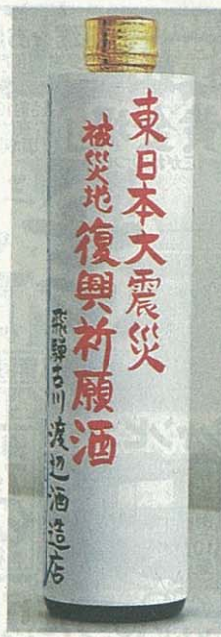 東日本大震災
被災地復興祈願酒
飛騨古川渡辺酒造店